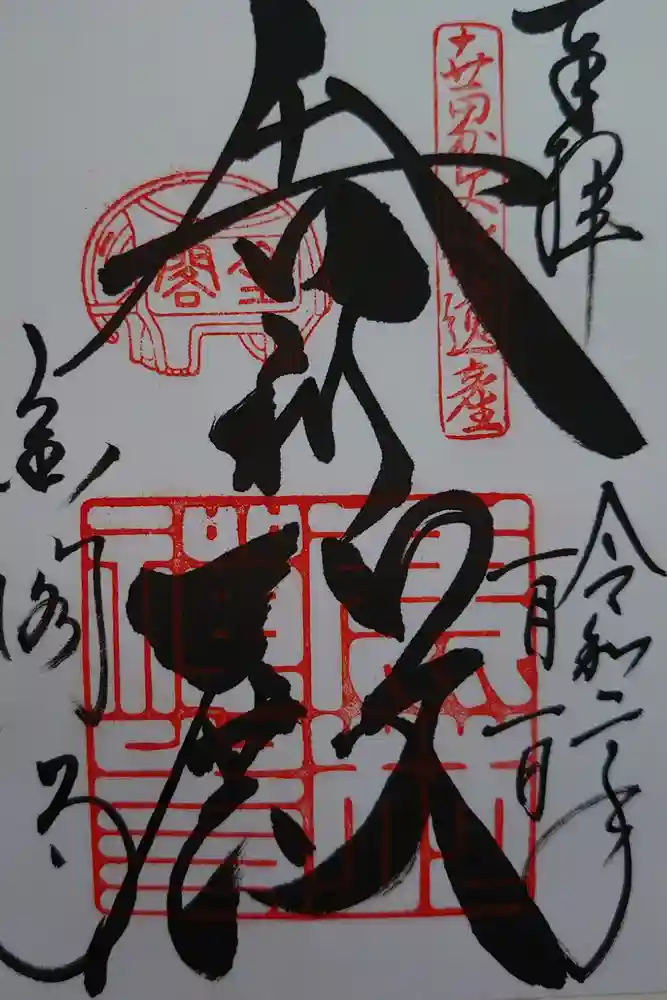 奉拝
令和二年
一月一日
世界文化遺産
舎利殿
金閣
金閣寺